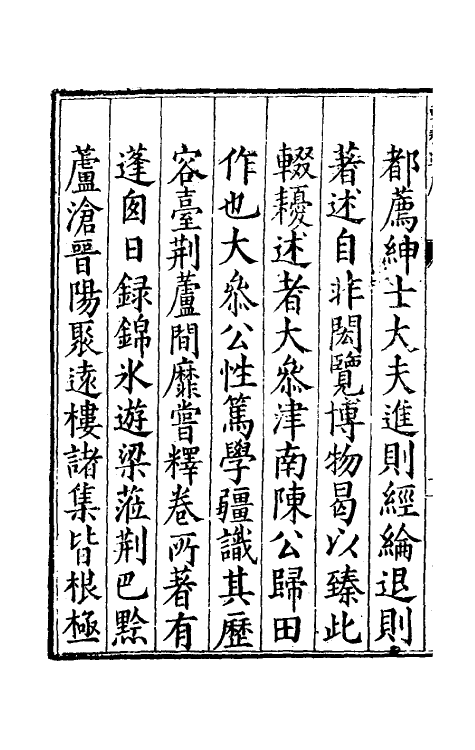 都薦紳士大夫進則經綸退則
著述自非閎覽博物曷以臻此
輟耰述者大叅津南陳公歸田
作也大叅公性篤學疆識其歷
容臺荆蘆間靡嘗釋卷所著有
蓬囪日録錦氷遊梁蒞荆巴黔
蘆滄晉陽聚遠樓諸集皆根極